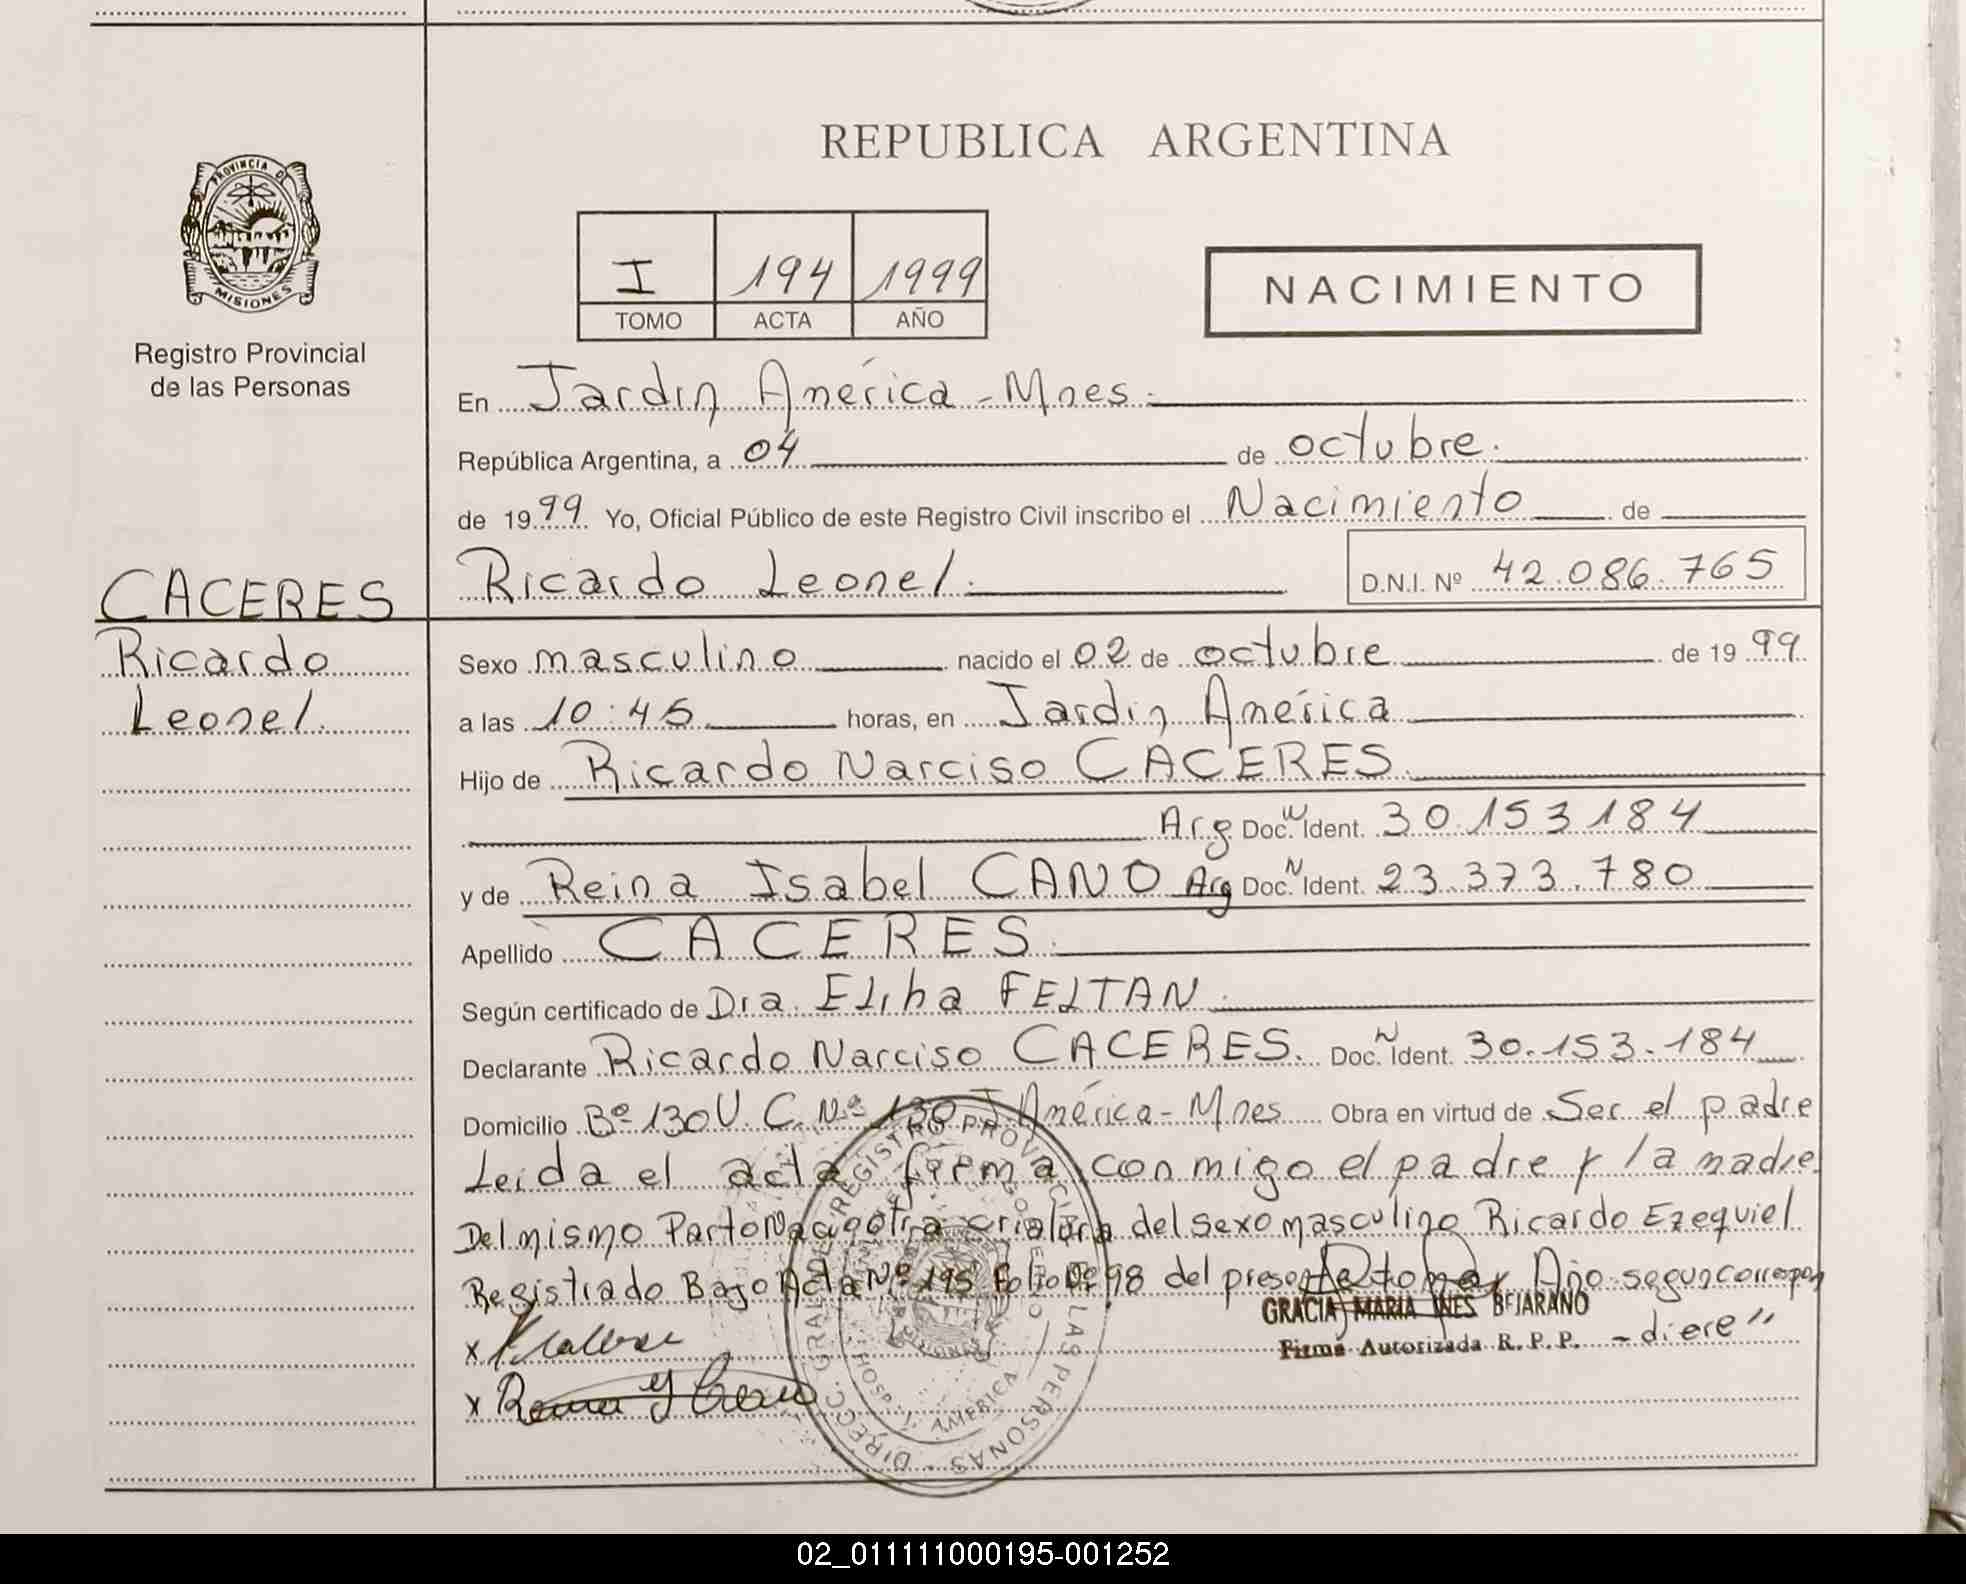 REPUBLICA ARGENTINA
PROVINCIA DE
MISIONES
Registro Provincial
de las Personas
I 194 1999
TOMO ACTA AÑO
NACIMIENTO
En Jardin América - Mnes.
República Argentina, a 04 de octubre.
de 1999. Yo, Oficial Público de este Registro Civil inscribo el Nacimiento de
Ricardo Leonel. D.N.I. Nº 42.086.765
CACERES
Ricardo
Leonel.
Sexo masculino nacido el 02 de octubre de 1999.
a las 10:45 horas, en Jardin América
Hijo de Ricardo Narciso CACERES
Arg Doc. N Ident. 30.153184
y de Reina Isabel CANO Arg Doc. N Ident. 23.373.780
Apellido CACERES.
Según certificado de Dra. FELTAN.
Declarante Ricardo Narciso CACERES. Doc. N Ident. 30.153.184
Domicilio Bº 130 U. C. Nº 130 J. América - Mnes Obra en virtud de Ser el padre
Leida el acta firma conmigo el padre y la madre.
Del mismo Parto Nacio otra criatura del sexo masculino Ricardo Ezequiel
Registrado Bajo Acta Nº 195 Folio Nº 98 del presente tomo y Año segun correspon
- diere"
GRACIA MARIA INES BEJARANO
Firma Autorizada R. P. P.
x
x
DIRECC. GRAL. DE REGISTRO PROVINCIAL DE LAS PERSONAS
HOSP. J. AMERICA
02_011111000195-001252